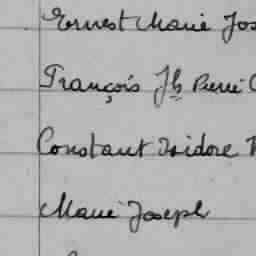 Ernest Marie Jos
François Jh Pierre
Constant Isidore
Marie Joseph